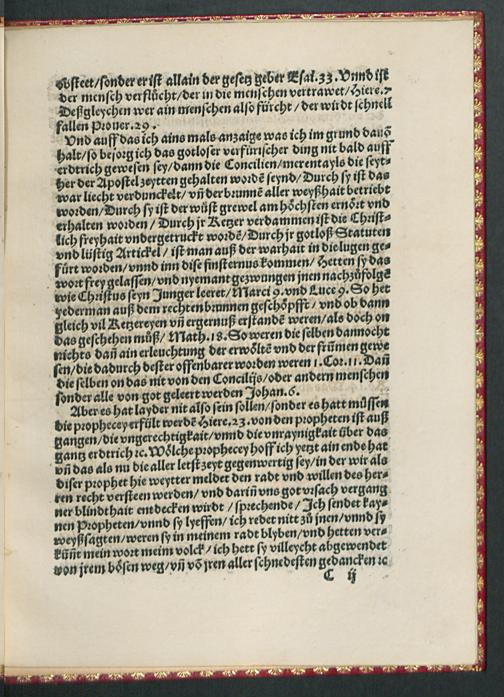 obsteet/sonder er ist allain der gesetz geber Esai.33. Vnnd ist
der mensch verflůcht/der in die menschen vertrawet/Hiere.7
Deßgleychen wer ain menschen also fürcht/der wirdt schnell
fallen Prouer.29.
Vnd auff das ich ains mals anzaige was ich im grund dauõ
halt/so besorg ich das gotloser verfürischer ding nit bald auff
erdtrich gewesen sey/dann die Concilien/merentayls die seyt-
her der Apostel zeytten gehalten wordẽ seynd/Durch sy ist das
war liecht verdunckelt/vñ der brunnẽ aller weyßhait betriebt
worden/Durch sy ist der wüst grewel am höchsten ernört vnd
erhalten worden/Durch jr Ketzer verdammen ist die Christ-
lich freyhait vndergetruckt wordẽ/Durch jr gotloß Statuten
vnd lüstig Artickel/ist man auß der warhait in die lugen ge-
fürt worden/vnnd inn dise finsternus kommen/Hetten sy das
wort frey gelassen/vnd nyemant gezwungen jnen nachzůfolgẽ
wie Christus seyn Junger leeret/Marci 9.vnd Luce 9. So het
yederman auß dem rechten brunnen geschöpfft/vnd ob dann
gleich vil Ketzereyen vñ ergernuß erstandẽ weren/als doch on
das geschehen můß/Math.18. So weren die selben dannocht
nichts dañ ain erleuchtung der erwöltẽ vnd der frũmen gewe
sen/die dadurch dester offenbarer worden weren 1.Cor.11. Dañ
die selben on das nit von den Concilijs/oder andern menschen
sonder alle von got geleert werden Johan.6.
Aber es hat layder nit also sein sollen/sonder es hatt müssen
die prophecey erfült werdẽ Hiere.23. von den propheten ist auß
gangen/die vngerechtigkait/vnnd die vnraynigkait über das
gantz erdtrich ꝛc. Wölche prophecey hoff ich yetzt ain ende hat
vñ das als nu die aller letst zeyt gegenwertig sey/in der wir als
diser prophet hie weytter meldet den radt vnd willen des her-
ren recht versteen werden/vnd darin̄ vns got vrsach vergang
ner blindthait entdecken wirdt/sprechende/Ich sendet kay-
nen Propheten/vnnd sy lyeffen/ich redet nitt zů jnen/vnnd sy
weyßsagten/weren sy in meinem radt blyben/vnd hetten ver-
kün̄t mein wort meim volck/ich hett sy villeycht abgewendet
von jrem bösen weg/vñ võ jren aller schnedesten gedancken ꝛc
C ij